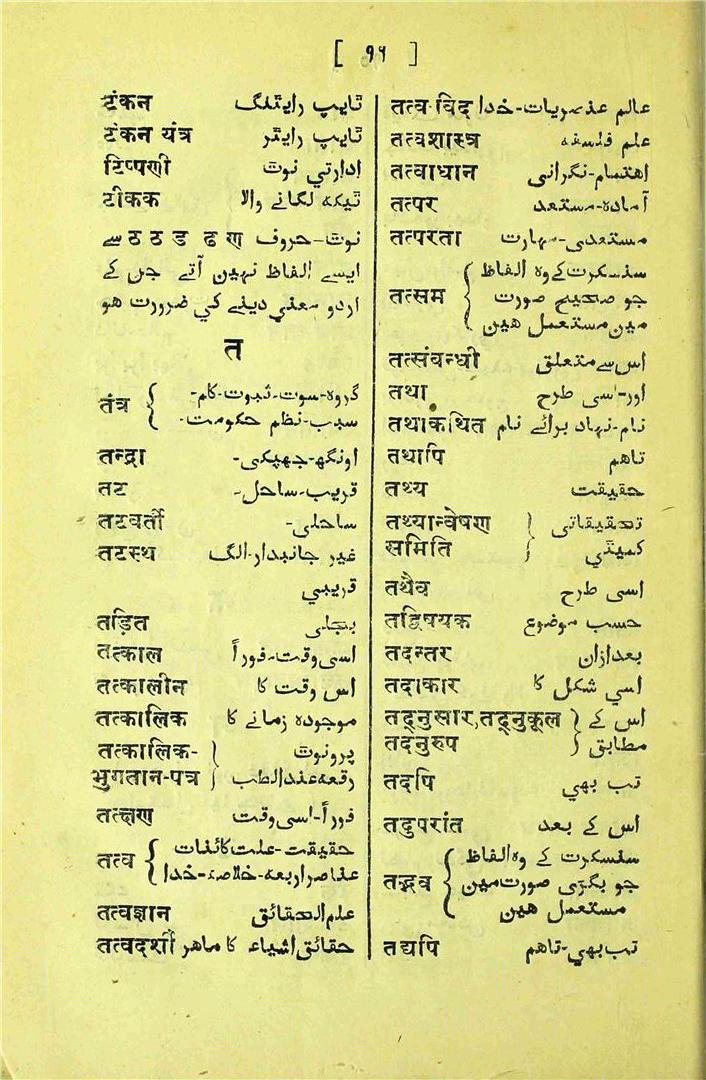 [ १५ ]
टंकन ٹایپ رایٹنگ
टंकन यंत्र ٹایپ رایٹر
टिप्पणी اِدارتي نوٹ
टीकक ٹیکہ لگانے والا
نوٹ-حروف ठ ठ ड ढ ण سے
ایسے الفاظ نہین آتے جن کے
اردو معني دینے کي ضرورت ھو
त
तंत्र { گروہ-سوت-ثبوت-کام-
سبب-نظم حکومت-
तन्द्रा اونگھ-جھپکی-
तट قریب-ساحل-
तटवर्ती ساحلی-
तटस्थ غیر جانبدار-الگ
قریبي
तड़ित بجلی
तत्काल اسی وقت-فوراً
तत्कालीन اس وقت کا
तत्कालिक موجودہ زمانے کا
तत्कालिक- } پرونوٹ
भुगतान-पत्र } رقعہ عندالطلب
तत्क्षण فوراً-اسی وقت
तत्व { حقیقت-علت کائنات
عناصر اربعہ-خلاصہ-خدا
तत्वज्ञान علم الحقائق
तत्वदर्शी حقائق اشیاء کا ماھر
तत्व-विद عالم عنصریات-خدا
तत्वशास्त्र علم فلسفہ
तत्वाधान اھتمام-نگرانی
तत्पर آمادہ-مستعد
तत्परता مستعدی-مہارت
तत्सम { سنسکرت کے وہ الفاظ
جو صحیح صورت
مین مستعمل ھین
तत्संबन्धी اس سے متعلق
तथा اور-اسی طرح
तथाकथित نام-نہاد برائے نام
तथापि تاھم
तथ्य حقیقت
तथ्यान्वेषण } تحقیقاتی
समिति } کمیٹي
तथैव اسی طرح
तद्विषयक حسب موضوع
तदन्तर بعد ازان
तदाकार اسي شکل کا
तद्नुसार,तद्नुकूल } اس کے
तदनुरुप } مطابق
तदपि تب بھي
तदुपरांत اس کے بعد
तद्भव { سنسکرت کے وہ الفاظ
جو بگڑی صورت مین
مستعمل ھین
तद्यपि تب بھي-تاھم